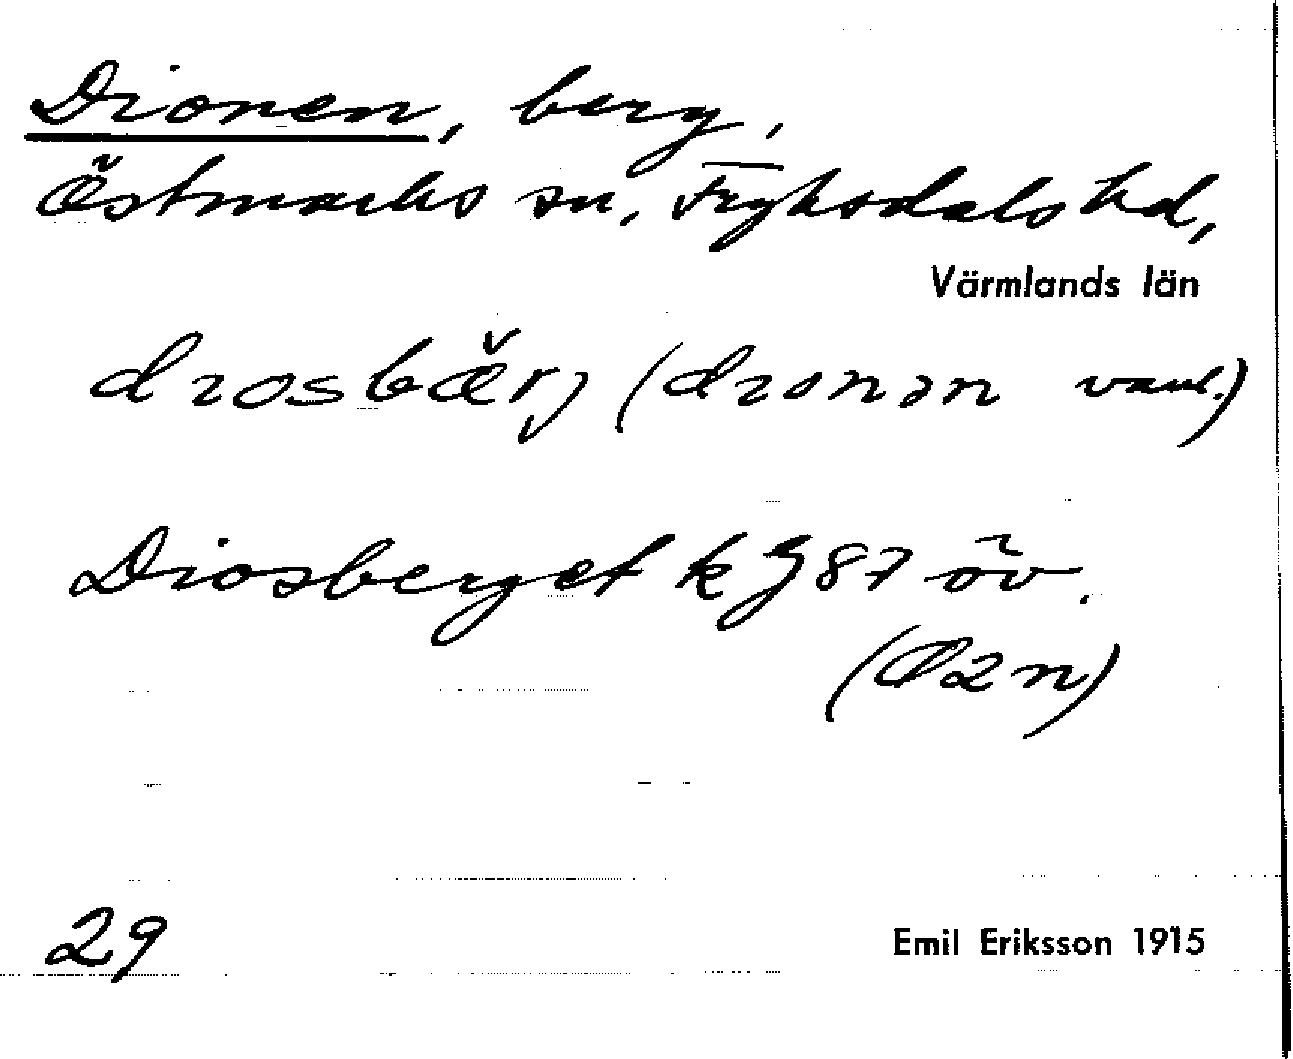 Dionen, berg,
Östmarks sn, Fryksdals hd,
Värmlands län
drosbärj (dronən vanl.)
Diosberget k J 87 öv.
29
Emil Eriksson 1915